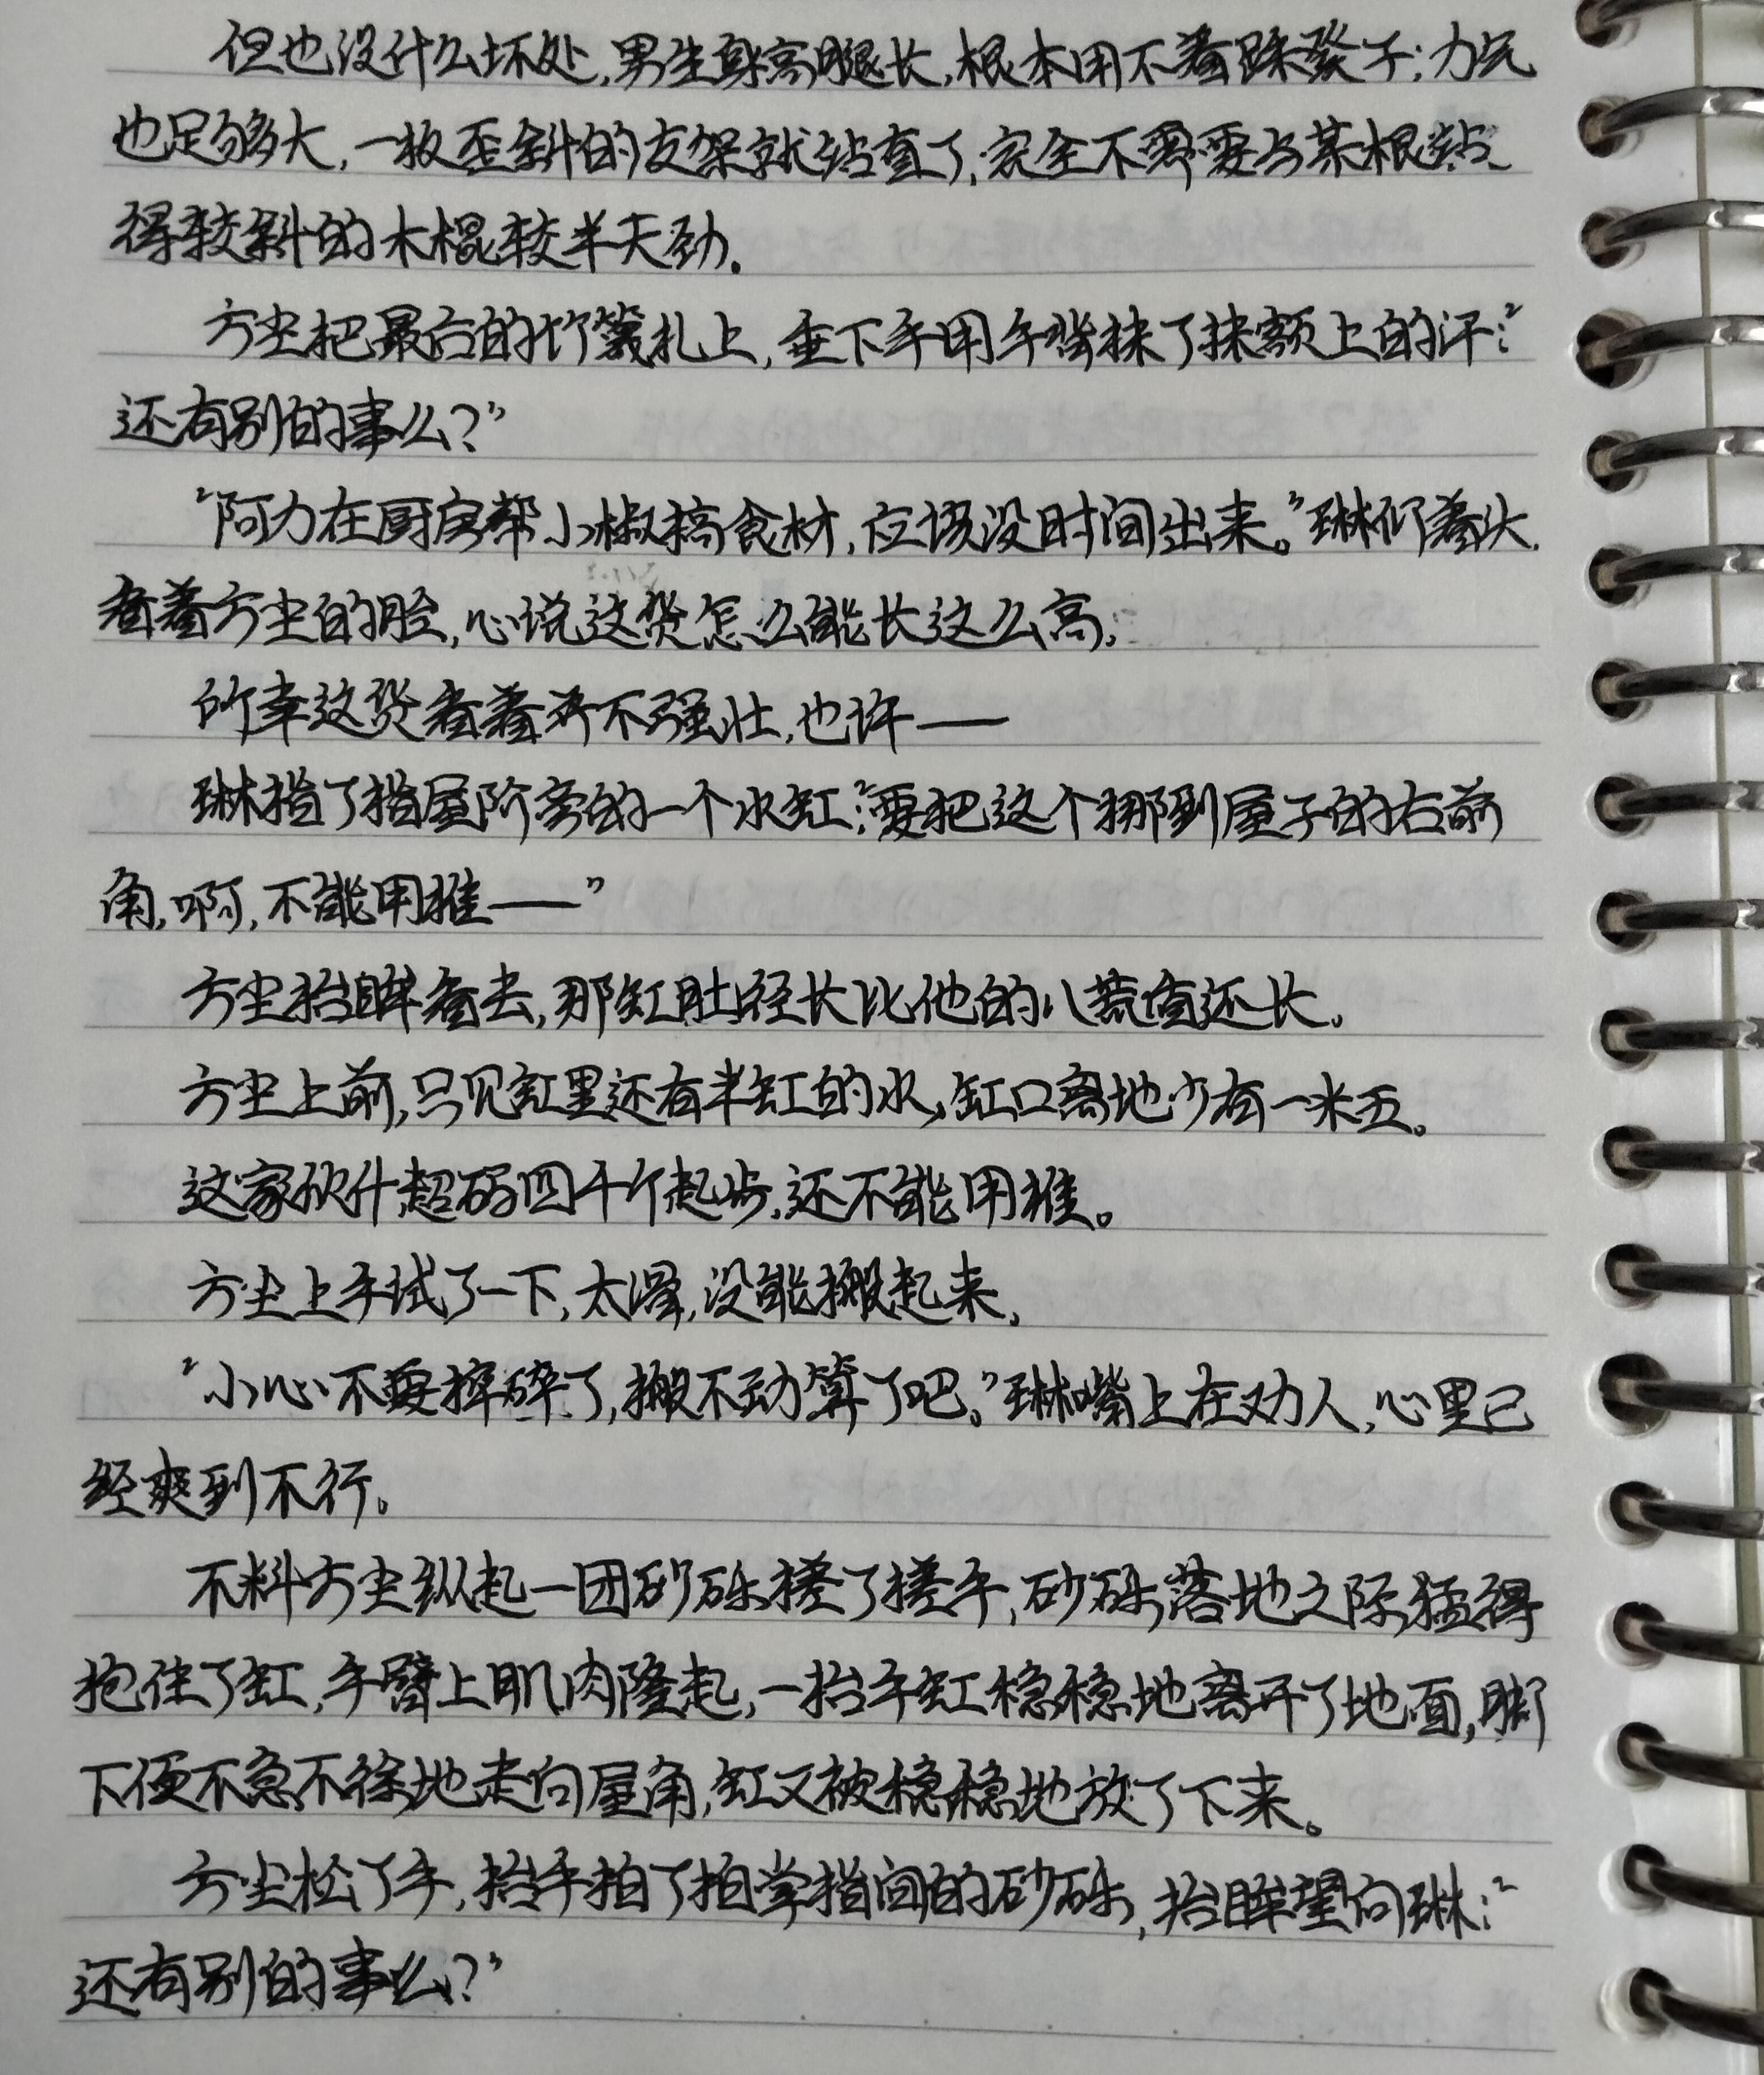 但也没什么坏处，男生身高腿长，根本用不着踩凳子；力气
也足够大，一扳歪斜的支架就站直了，完全不需要与某根站
得较斜的木棍较半天劲。
方尘把最后的竹篾扎上，垂下手用手背抹了抹额上的汗：“
还有别的事么？”
“阿力在厨房帮小椒搞食材，应该没时间出来。”琳仰着头，
看着方尘的脸，心说这货怎么能长这么高，
所幸这货看着并不强壮，也许——
琳指了指屋阶旁的一个水缸：“要把这个挪到屋子的右前
角，啊，不能用推——”
方尘抬眸看去，那缸肚径长比他的八荒直还长。
方尘上前，只见缸里还有半缸的水，缸口离地少有一米五。
这家伙什起码四千斤起步，还不能用推。
方尘上手试了一下，太滑，没能搬起来，
“小心不要摔碎了，搬不动算了吧。”琳嘴上在劝人，心里已
经爽到不行。
不料方尘纵起一团砂砾搓了搓手，砂砾落地之际猛得
抱住了缸，手臂上肌肉隆起，一抬手缸稳稳地离开了地面，脚
下便不急不徐地走向屋角，缸又被稳稳地放了下来。
方尘松了手，抬手拍了拍掌指间的砂砾，抬眸望向琳：“
还有别的事么？”